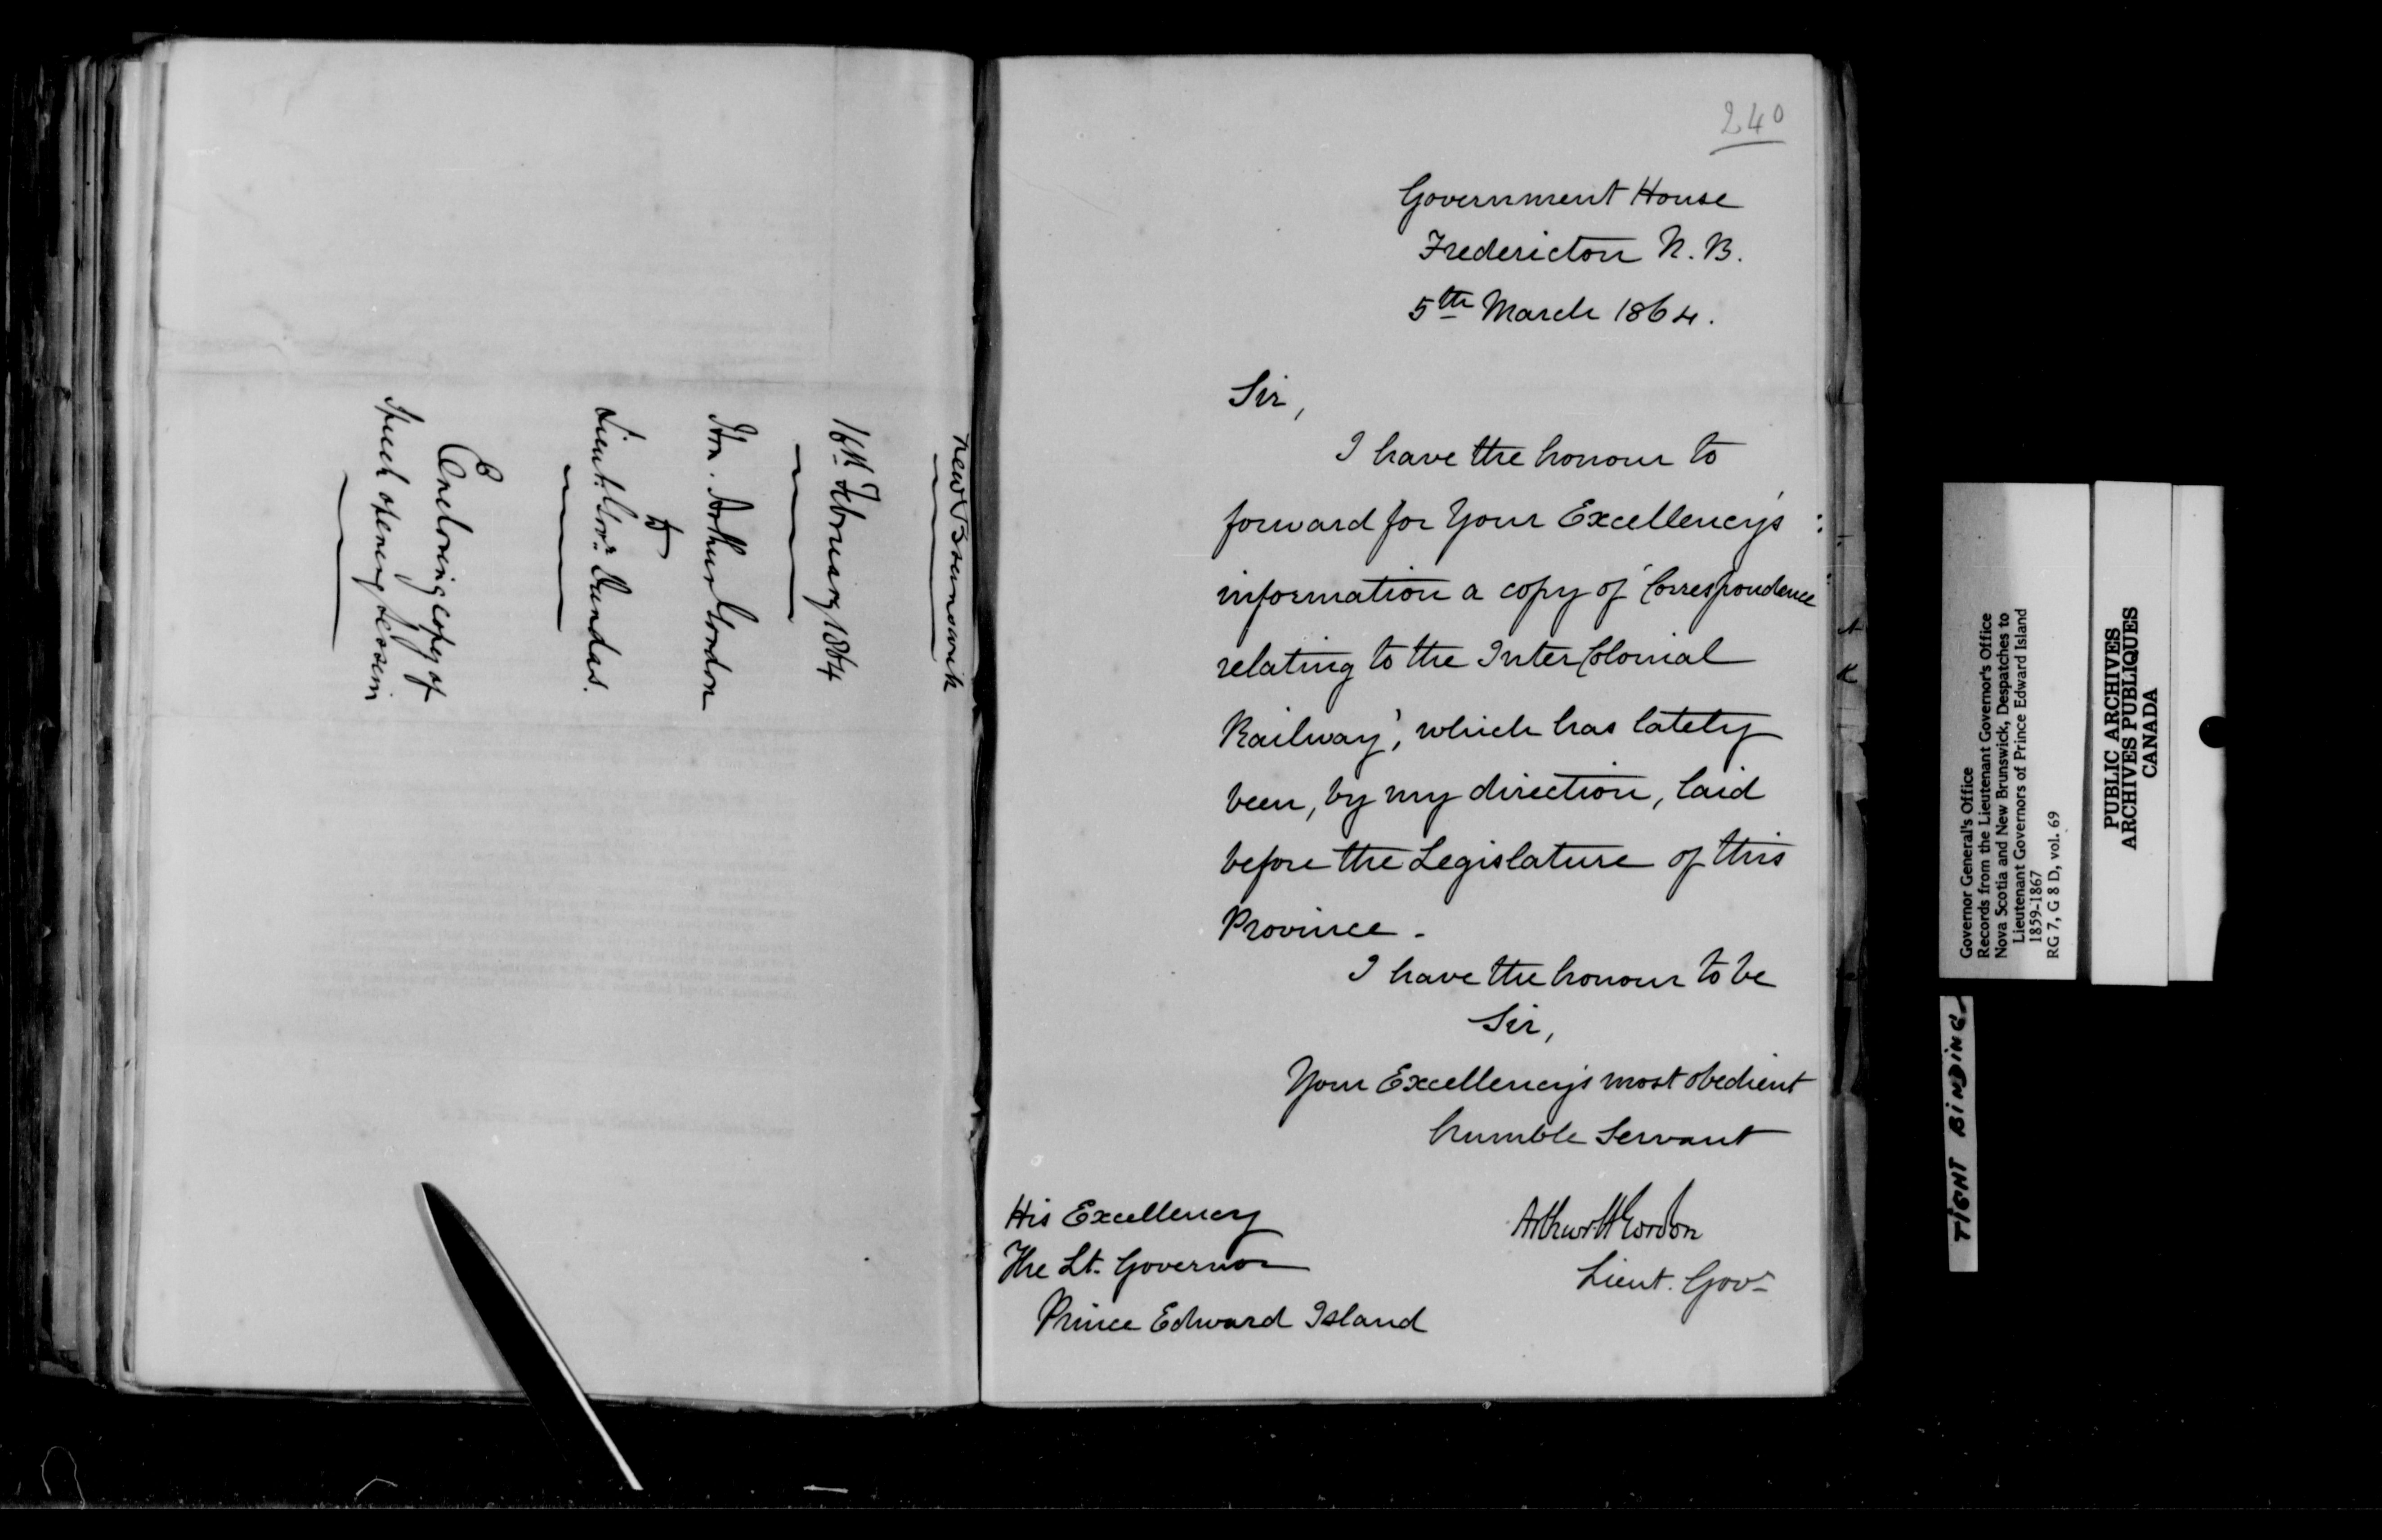 New Brunswick
16th February 1864
Hon. Arthur Gordon
to
Lieut: Govr. Dundas.
Enclosing copy of
Speech opening Session
240
Government House
Fredericton N.B.
5th March 1864.
Sir,
I have the honour to
forward for Your Excellency's
information a copy of 'Correspondence
relating to the InterColonial
Railway', which has lately
been, by my direction, laid
before the Legislature of this
Province -
I have the honour to be
Sir,
Your Excellency's most obedient
humble Servant
Arthur H Gordon
Lieut. Govr
His Excellency
The Lt. Governor
Prince Edward Island
Governor General's Office
Records from the Lieutenant Governor's Office
Nova Scotia and New Brunswick, Despatches to
Lieutenant Governors of Prince Edward Island
1859-1867
RG 7, G 8 D, vol. 69
PUBLIC ARCHIVES
ARCHIVES PUBLIQUES
CANADA
TIGHT BINDING